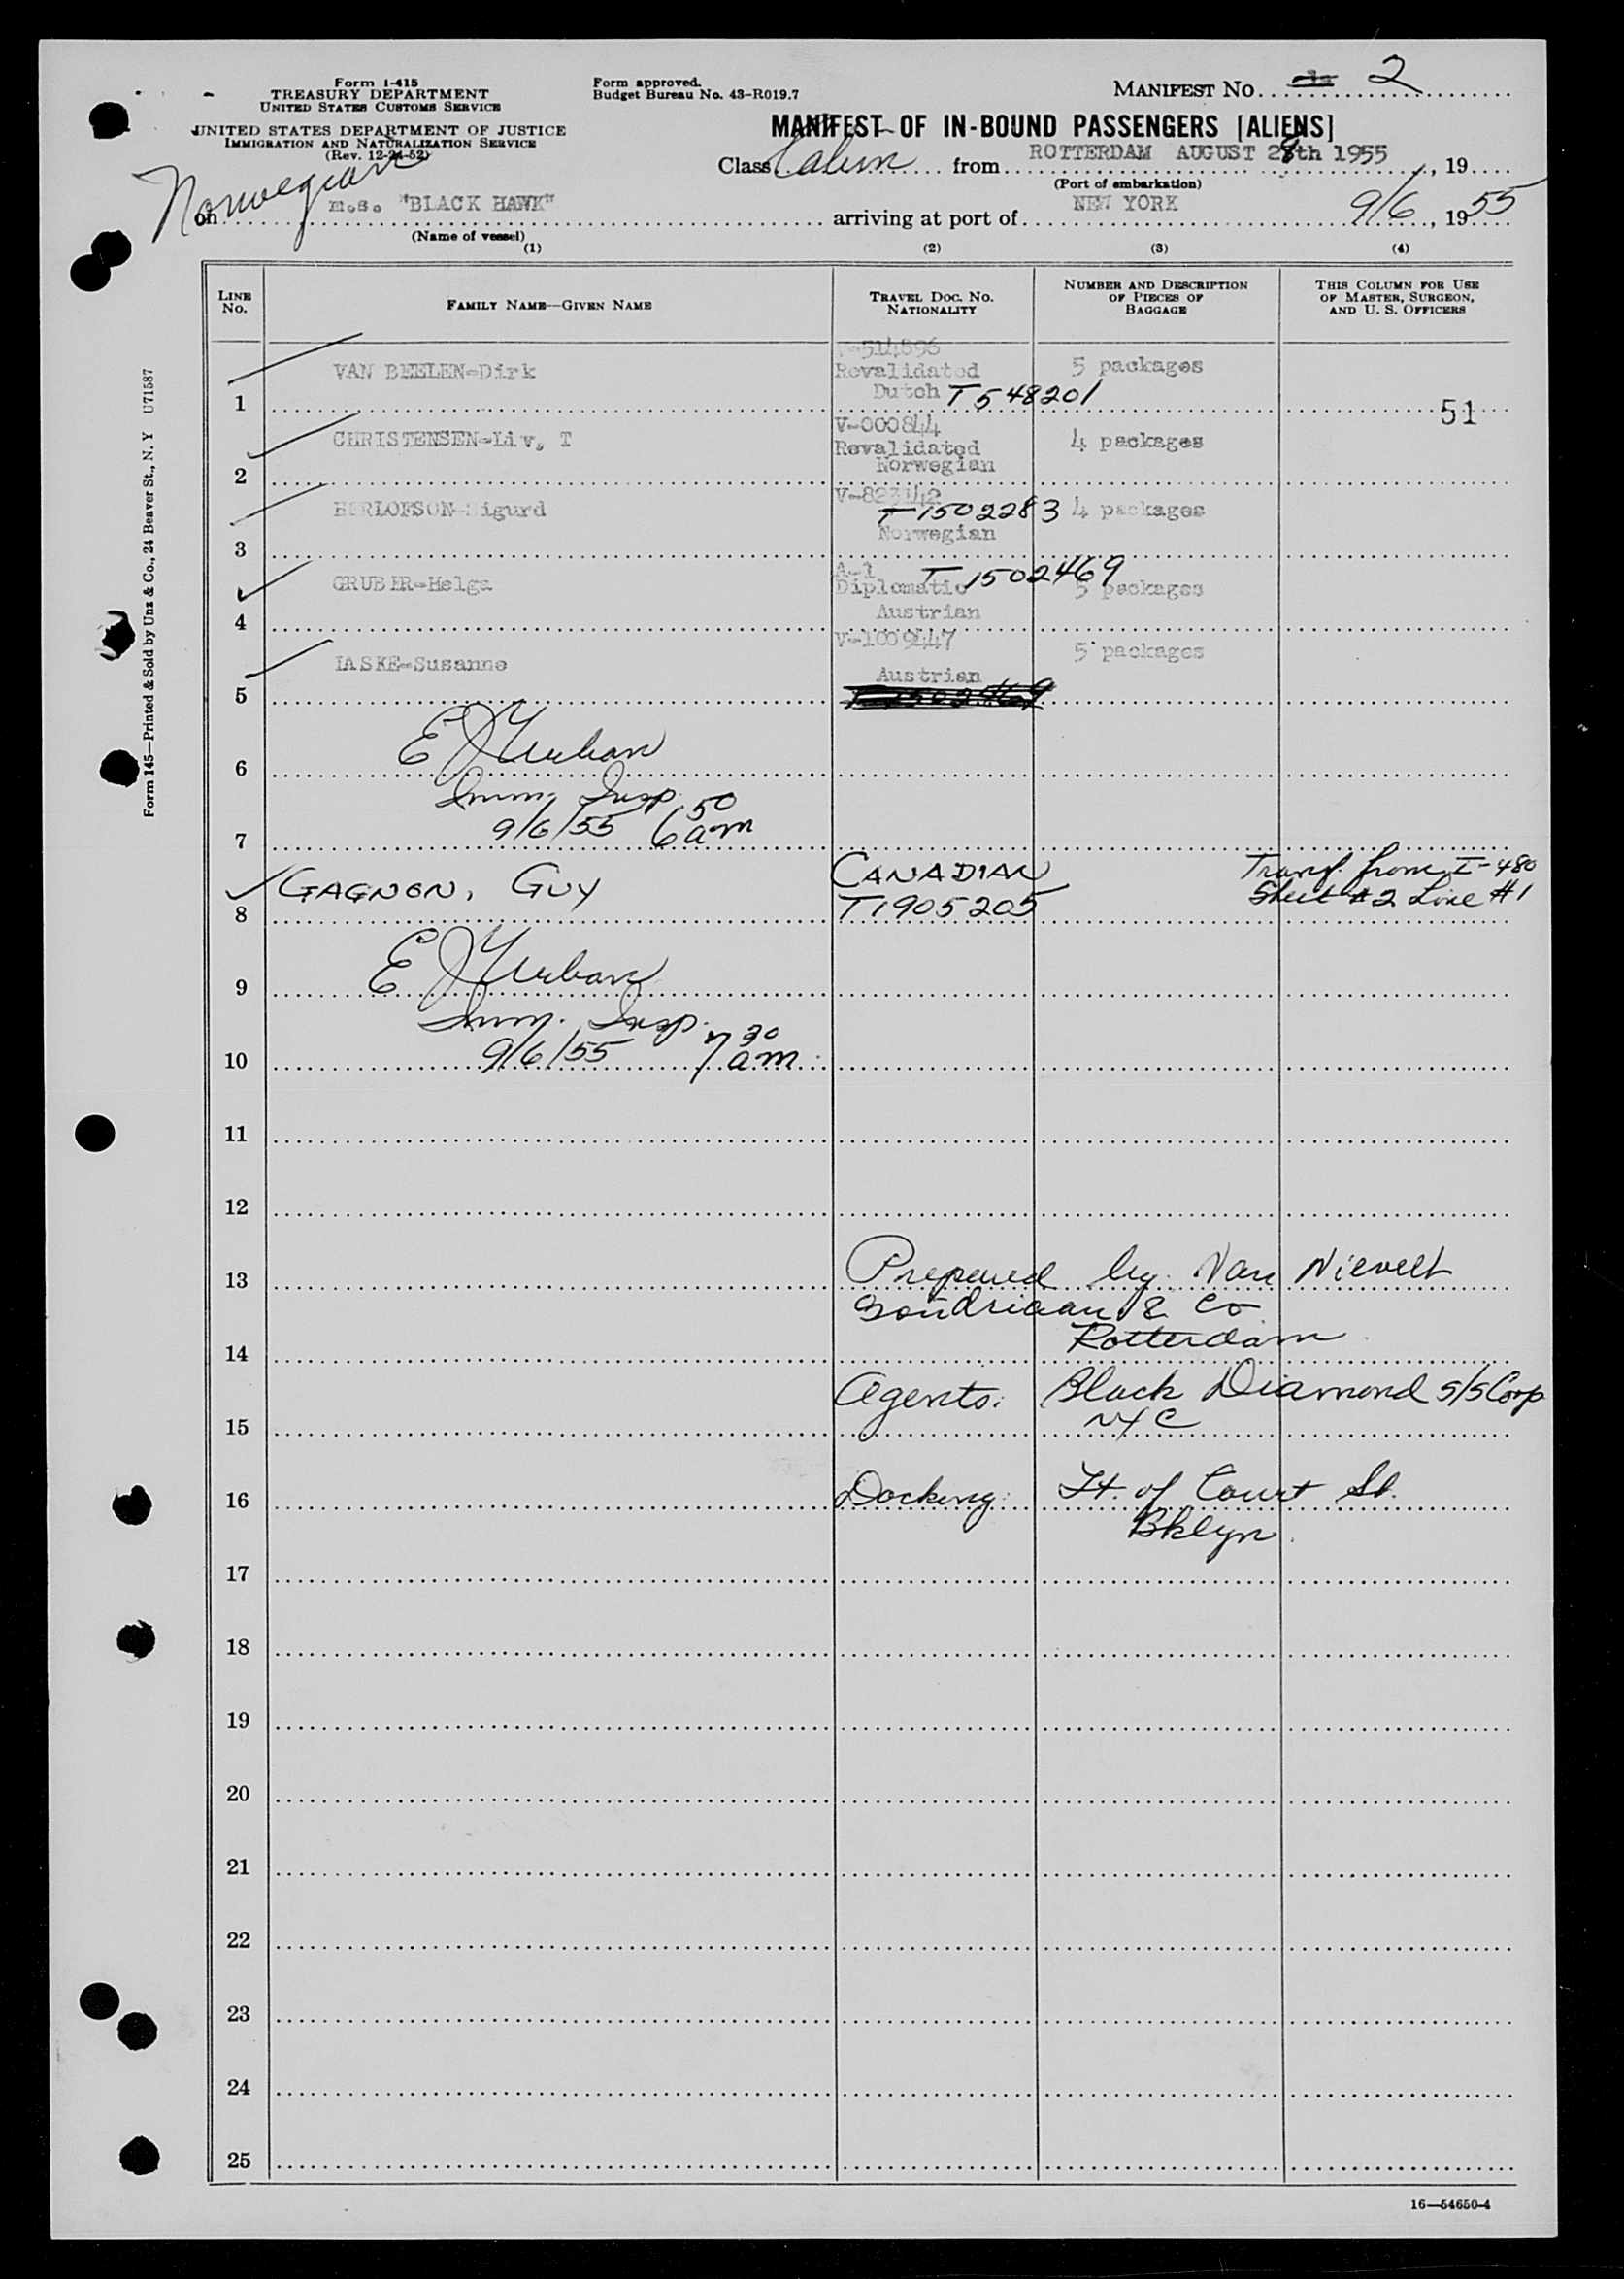 Form I-415
TREASURY DEPARTMENT
UNITED STATES CUSTOMS SERVICE
UNITED STATES DEPARTMENT OF JUSTICE
IMMIGRATION AND NATURALIZATION SERVICE
(Rev. 12-24-52)
Form approved.
Budget Bureau No. 43-R019.7
MANIFEST No. 2
MANIFEST OF IN-BOUND PASSENGERS [ALIENS]
Class Cabin from ROTTERDAM AUGUST 28th 1955, 19
(Port of embarkation)
Norwegian
on m.s. "BLACK HAWK" arriving at port of NEW YORK 9/6, 1955
(Name of vessel)
(1) (2) (3) (4)
LINE No.
FAMILY NAME—GIVEN NAME
TRAVEL DOC. NO. NATIONALITY
NUMBER AND DESCRIPTION OF PIECES OF BAGGAGE
THIS COLUMN FOR USE OF MASTER, SURGEON, AND U. S. OFFICERS
V-514896
VAN BEELEN-Dirk Revalidated 5 packages
1 Dutch T548201 51
V-000844
CHRISTENSEN-Liv, T Revalidated 4 packages
2 Norwegian
V-823142
HERLOFSON-Sigurd T1502283 4 packages
3 Norwegian
A-1 T1502469
GRUBER-Helga Diplomatic 5 packages
4 Austrian
V-1009447
LASKE-Susanne 5 packages
5 Austrian
T1502469
E J Urban
6
Imm. Insp.
7 9/6/55 6 50 am
GAGNON, GUY CANADIAN Transf. from I-480
8 T1905205 Sheet #2 Line #1
E J Urban
9
Imm. Insp.
10 9/6/55 7 30 am
11
12
13 Prepared by Van Nievelt
Goudriaan & Co
14 Rotterdam
Agents: Black Diamond S/S Corp
15 NYC
16 Docking: Ft. of Court St.
Bklyn.
17
18
19
20
21
22
23
24
25
16—54650-4
Form 145—Printed & Sold by Unz & Co., 24 Beaver St., N. Y U71587